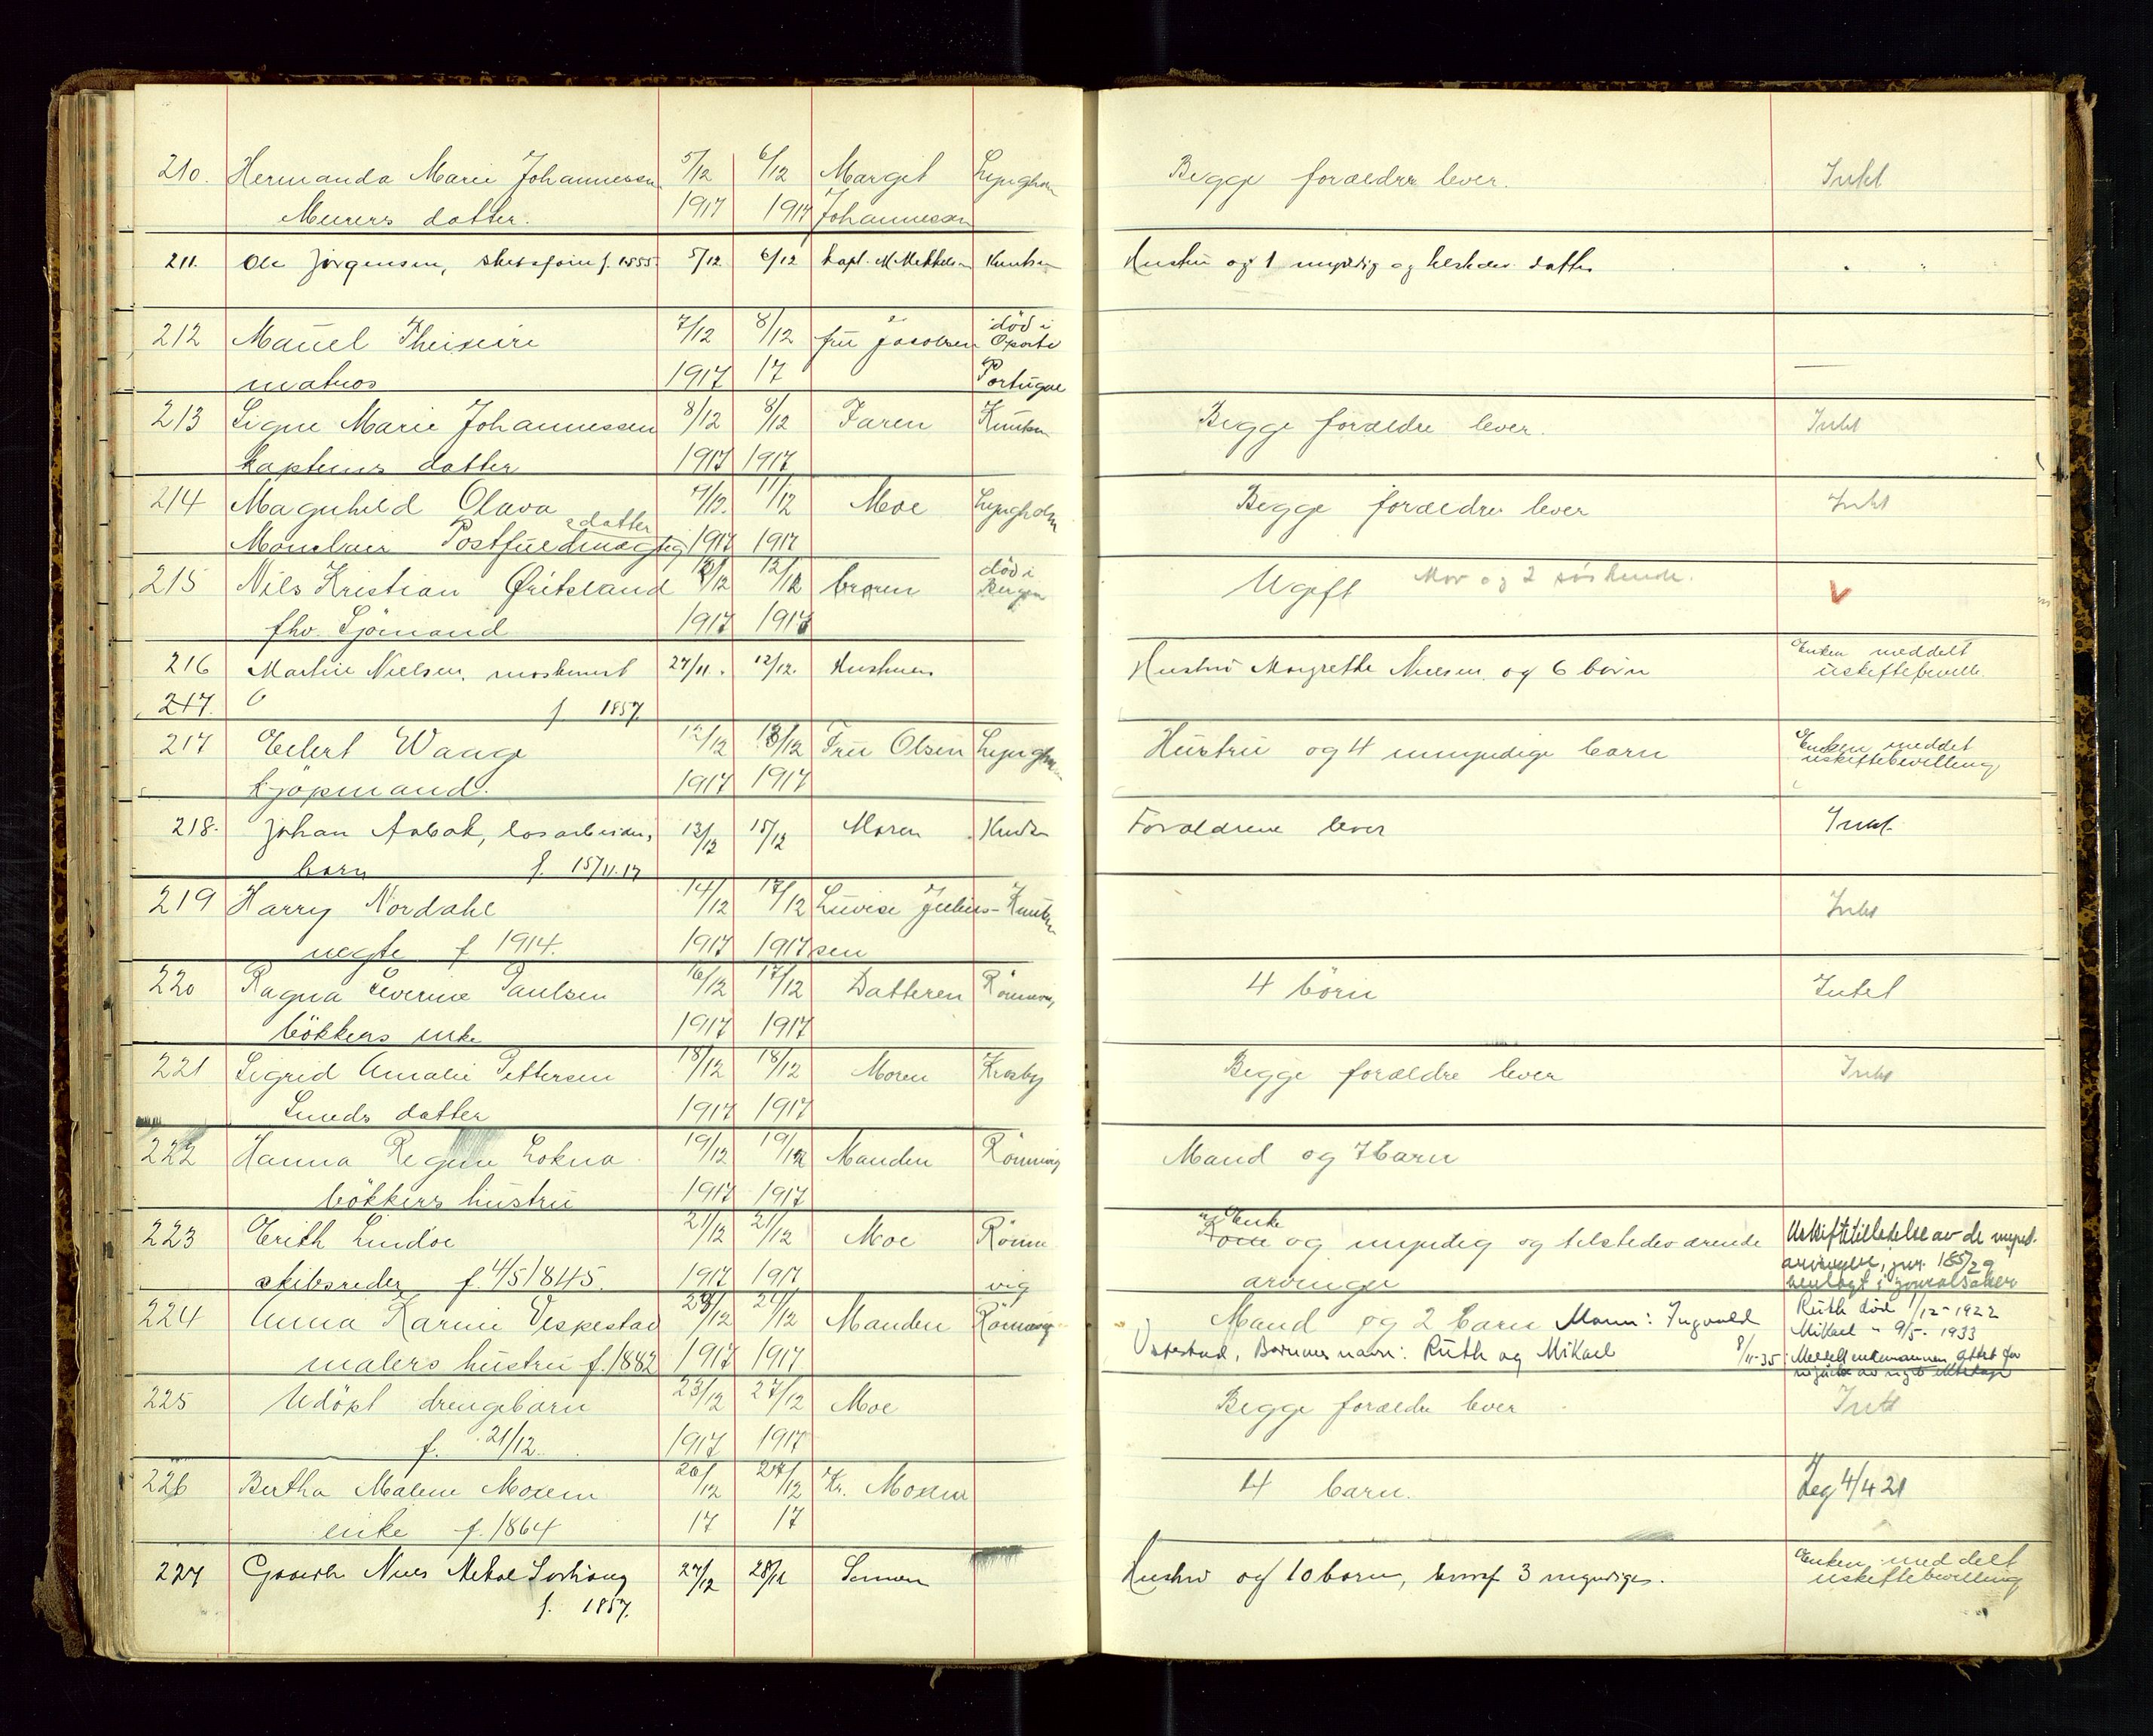 210. Hermanda Marie Johannessen 5/12 6/12 Marget Lyngholm Begge forældre lever. Intet
Murers datter. 1917 1917 Johannessen
211. Ole Jörgensen, f. 1855 5/12 6/12 kapt. M. Mikkelsen Knutsen Hustru og 1 myndig og tilstedev. datter " "
212 Mañel Theixeire 7/12 8/12 fru Jacobsen död i Oporto —
matros 1917 17 Portugal
213 Signe Marie Johannessen 8/12 8/12 Faren Knutsen Begge forældre lever. Intet
kapteins datter 1917 1917
214 Magnhild Olava 9/12. 11/12 Moe Lyngholm Begge forældre lever Intet
Monclair Postfuldmægtig datter 1917 1917
215 Nils Kristian Øritsland 8/12 12/12 broren död i Bergen Ugift Mor og 2 söskende. V
fhv. Sjömand 1917 1917
216 Martin Nielsen, maskinist 27/11. 12/12. Hustruen Hustru Margrethe Nielsen og 6 börn Enken meddelt uskiftebeville.
217. f. 1857.
217 Eilert Waage 12/12 13/12 Fru Olsen Lyngholm Hustru og 4 umyndige barn Enken meddelt uskiftebevilling
kjöpmand. 1917 1917
218. Johan Aabak, losarbeiders 13/12 15/12 Moren Knuts Forældrene lever Intet.
barn f. 15/11.17
219 Harry Nordahl 14/12 17/12 Luvise Julius- Knutsen Intet
uegte f 1914. 1917 1917 sen
220 Ragna Severine Paulsen 16/12 17/12 Datteren Rönnevig 4 börn Intet
bökkers enke 1917 1917
221 Sigrid Amalie Pettersen 18/12 18/12 Moren Krosby Begge forældre lever Intet
Smeds datter 1917 1917
222 Hanna Regine Lokna 19/12 19/12 Manden Rönnevig Mand og 7 barn
bökkers hustru 1917 1917
223 Erith Lindöe 21/12 21/12 Moe Rönne Enke og myndig og tilstedeværende Uskiftetilladelse av de mynd.
skibsreder f. 4/5 1845. 1917 1917 vig arvinger arvinger, jnr. 185/29
henlagt i journalsaker
224 Anna Karine Vespestad 23/12 24/12 Manden Rönnevig Mand og 2 barn Mann: Ingvald Ruth död 1/12-1922
Mikael " 9/5. 1933
malers hustru f. 1882 1917 1917 Vespestad, Barnenes navn: Ruth og Mikael 8/11-35: Meddelt enkemannen attest for
225 Udöpt drengebarn 23/12 27/12 Moe Begge forældre lever Intet
f. 21/12. 1917 1917
226 Bertha Malene Moxnes 26/12 27/12 Kr. Moxnes 4 barn. Leg 4/4 21
enke f. 1864 17 17
227 Nils Mikal 27/12 28/12 Sönnen Hustru og 10 barn, hvoraf 3 myndige. Enken meddelt uskiftebevilling
f. 1857.